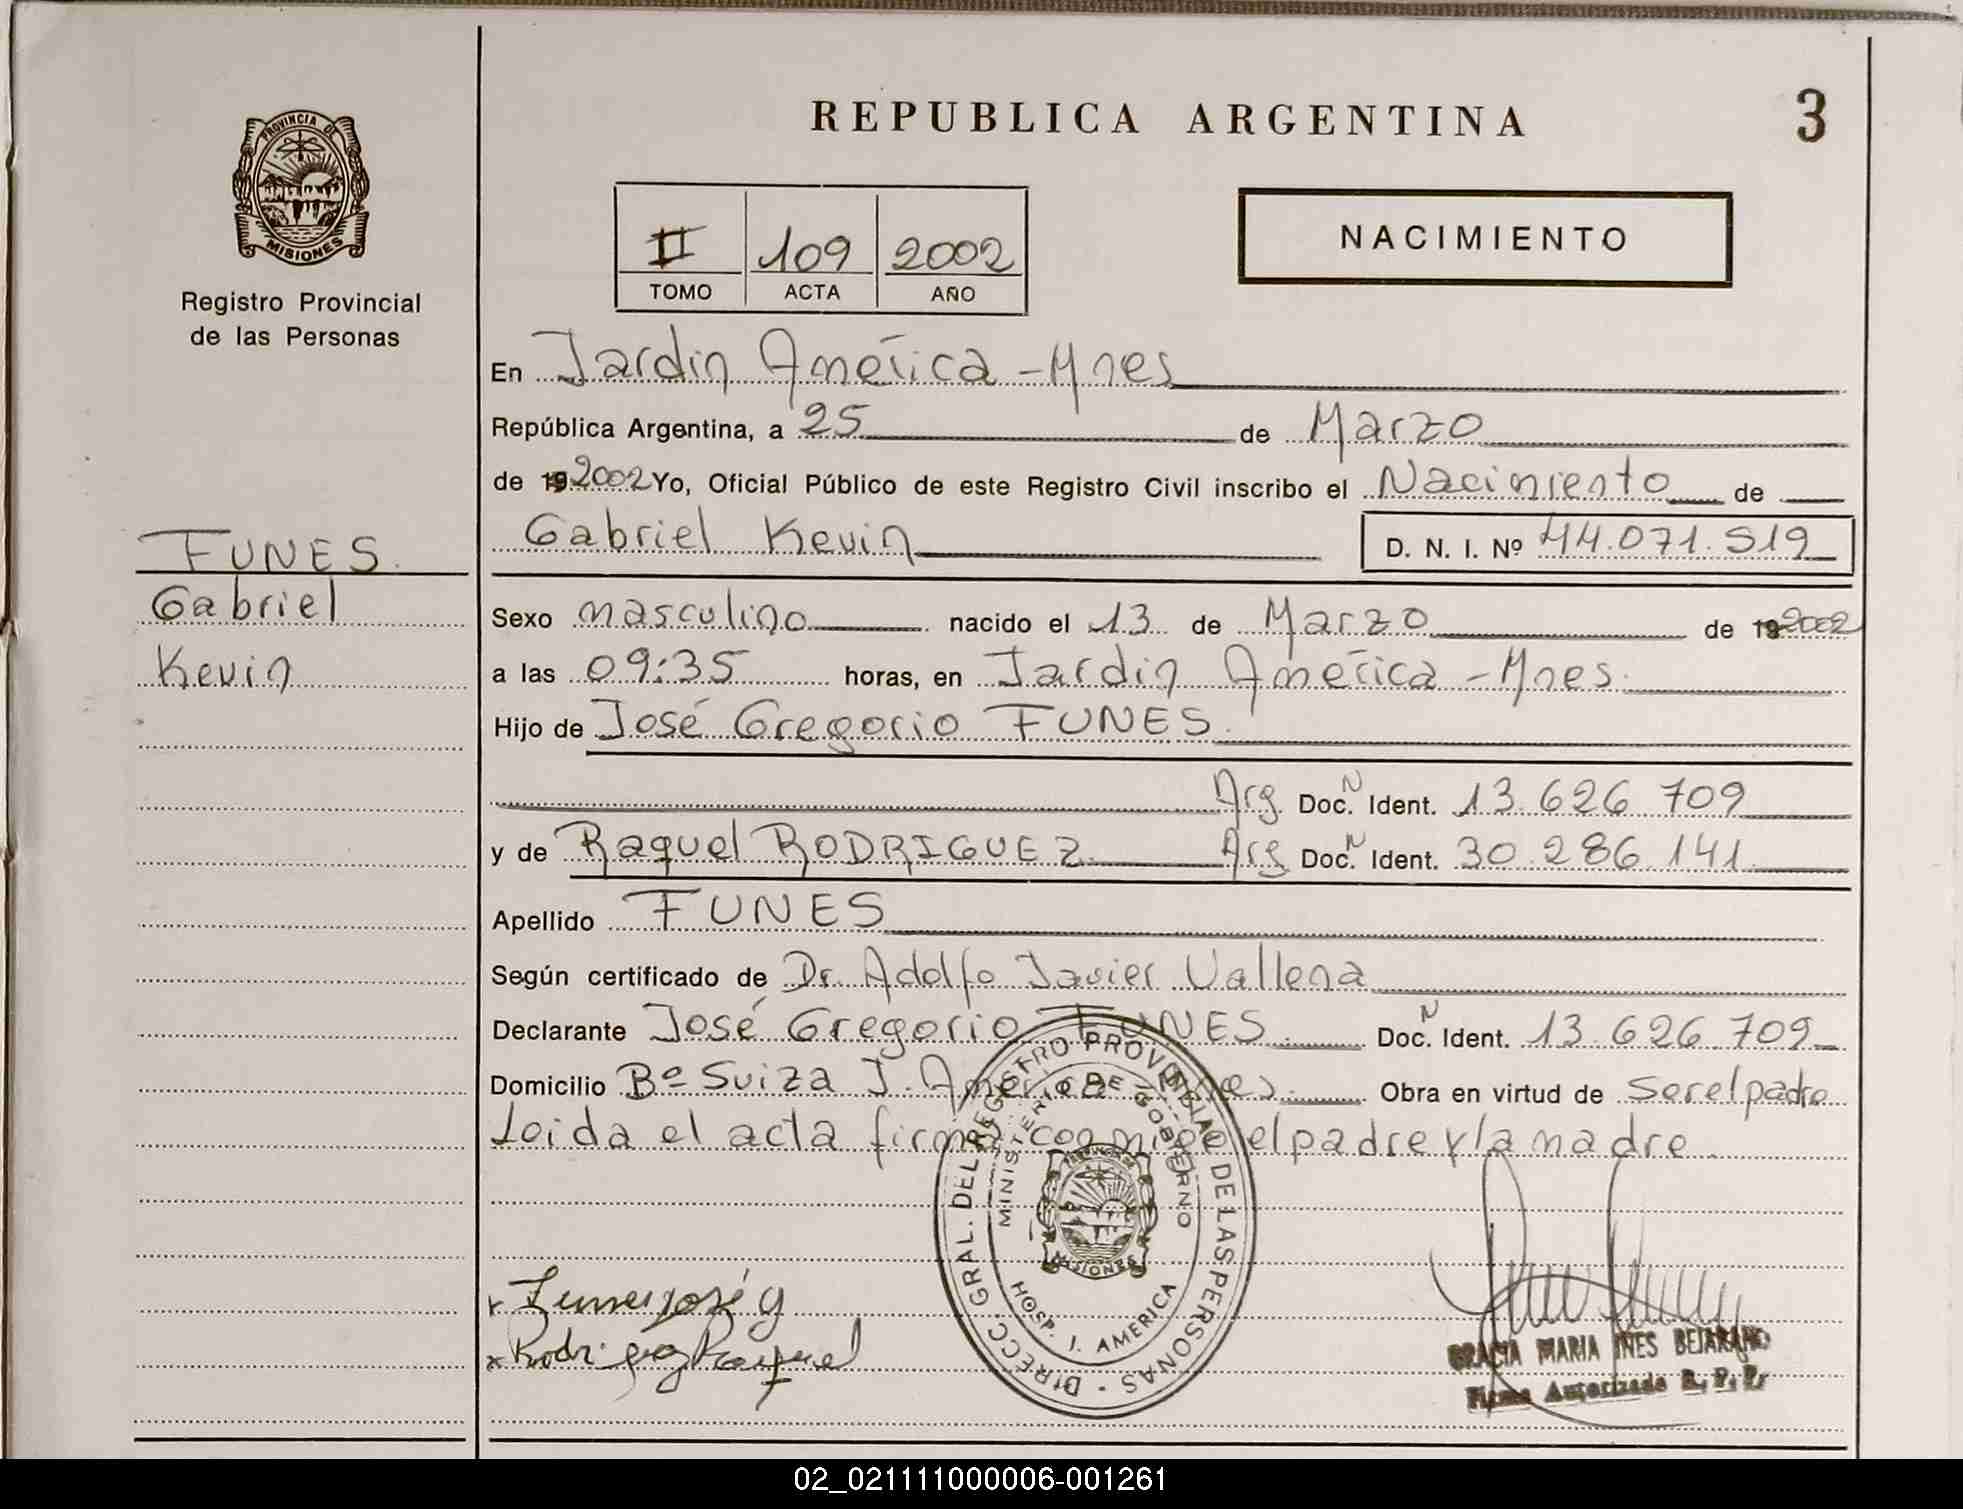 PROVINCIA DE
MISIONES
Registro Provincial
de las Personas
FUNES.
Gabriel
Kevin
REPUBLICA ARGENTINA
3
II 109 2002
TOMO ACTA AÑO
NACIMIENTO
En Jardin América - Mnes
República Argentina, a 25 de Marzo
de 19 2002 Yo, Oficial Público de este Registro Civil inscribo el Nacimiento de
Gabriel Kevin D. N. I. Nº 44.071.519
Sexo masculino nacido el 13 de Marzo de 19 2002
a las 09:35 horas, en Jardin América - Mnes.
Hijo de José Gregorio FUNES.
Arg. Doc. N Ident. 13.626.709
y de Raquel RODRIGUEZ. Arg Doc. N Ident. 30.286.141
Apellido FUNES
Según certificado de Dr. Adolfo Javier Vallena
Declarante José Gregorio FUNES Doc. N Ident. 13.626.709
Domicilio Bº Suiza J. América Mnes. Obra en virtud de Ser el padre
Leida el acta firma conmigo el padre y la madre.
DIRECC. GRAL. DEL REGISTRO PROVINCIAL DE LAS PERSONAS
MINISTERIO DE GOBIERNO
MISIONES
HOSP. I. AMERICA
Funes josé g
x Rodriguez Raquel
GRACIA MARIA INES BEJARANO
Firma Autorizada R. P. P.
02_021111000006-001261